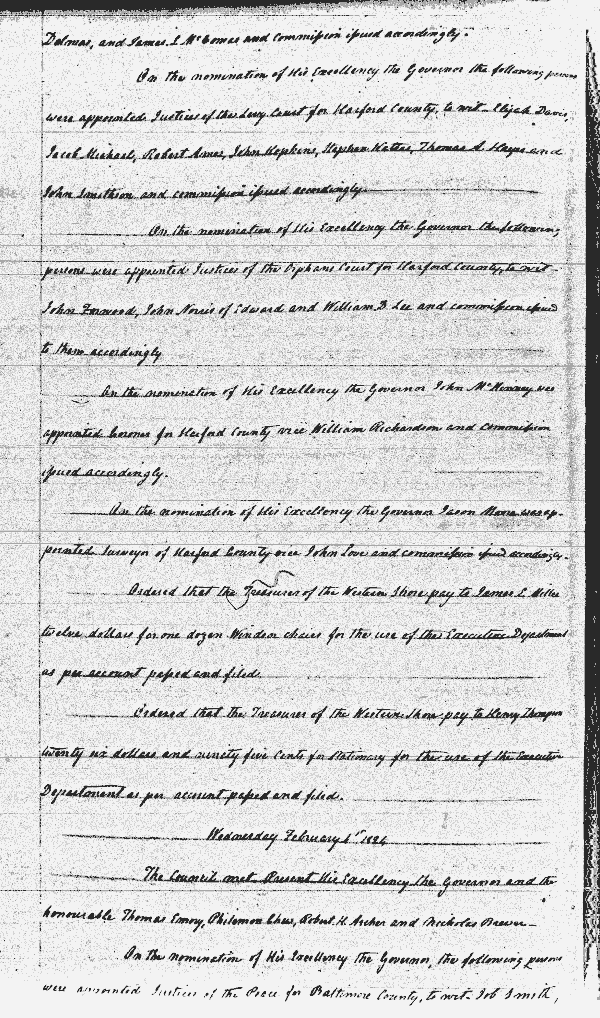 Dalmas, and James L McComas and commission issued accordingly.
On the nomination of His Excellency the Governor the following persons
were appointed Justices of the Levy Court for Harford County, to wit. Elijah Davis,
Jacob Michael, Robert Amos, John Hopkins, Stephen Watters, Thomas A. Hays and
John Smithson and commission issued accordingly
On the nomination of His Excellency the Governor the following
persons were appointed Justices of the Orphans Court for Harford County, to wit.
John Forwood, John Norris of Edward and William D Lee and commission issued
to them accordingly
On the nomination of His Excellency the Governor John McKenney was
appointed Coroner for Harford County vice William Richardson and commission
issued accordingly.
On the nomination of His Excellency the Governor Jason Moore was ap-
pointed Surveyor of Harford County vice John Love and commission issued accordingly.
Ordered that the Treasurer of the Western Shore pay to James L Miller
twelve dollars for one dozen Windsor chairs for the use of the Executive Department
as per account passed and filed.
Ordered that the Treasurer of the Western Shore pay to Henry Thompson
twenty six dollars and ninety five Cents for stationary for the use of the Executive
Department as per account passed and filed.
Wednesday February 1st 1826
The Council met. Present His Excellency the Governor and the
honourable Thomas Emory, Philemon Chew, Robert H. Archer and Nicholas Brewer
On the nomination of His Excellency the Governor, the following persons
were appointed Justices of the Peace for Baltimore County, to wit. Job Smith,